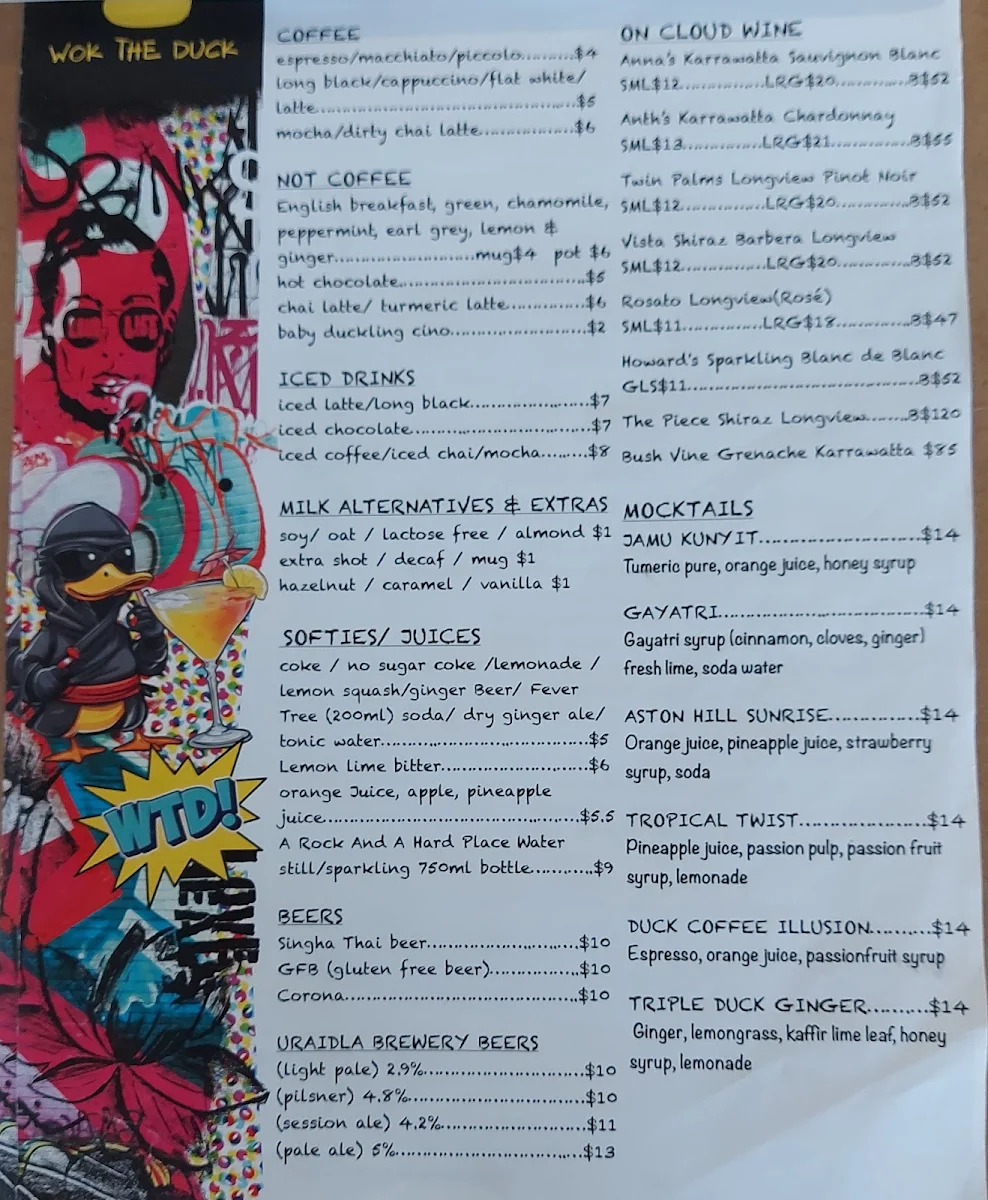 WOK THE DUCK
DRINK
WTD!
COFFEE
espresso/macchiato/piccolo..........$4
long black/cappuccino/flat white/
latte...................................................$5
mocha/dirty chai latte..................$6
NOT COFFEE
English breakfast, green, chamomile,
peppermint, earl grey, lemon &
ginger...........................mug$4 pot $6
hot chocolate...................................$5
chai latte/ turmeric latte..............$6
baby duckling cino..........................$2
ICED DRINKS
iced latte/long black......................$7
iced chocolate..................................$7
iced coffee/iced chai/mocha.........$8
MILK ALTERNATIVES & EXTRAS
soy/ oat / lactose free / almond $1
extra shot / decaf / mug $1
hazelnut / caramel / vanilla $1
SOFTIES/ JUICES
coke / no sugar coke /lemonade /
lemon squash/ginger Beer/ Fever
Tree (200ml) soda/ dry ginger ale/
tonic water.......................................$5
Lemon lime bitter............................$6
orange Juice, apple, pineapple
juice................................................$5.5
A Rock And A Hard Place Water
still/sparkling 750ml bottle...........$9
BEERS
Singha Thai beer............................$10
GFB (gluten free beer).................$10
Corona............................................$10
URAIDLA BREWERY BEERS
(light pale) 2.9%..............................$10
(pilsner) 4.8%.................................$10
(session ale) 4.2%...........................$11
(pale ale) 5%...................................$13
ON CLOUD WINE
Anna's Karrawatta Sauvignon Blanc
SML$12..............LRG$20............B$52
Anth's Karrawatta Chardonnay
SML$13..............LRG$21.............B$55
Twin Palms Longview Pinot Noir
SML$12..............LRG$20............B$52
Vista Shiraz Barbera Longview
SML$12..............LRG$20............B$52
Rosato Longview(Rosé)
SML$11..............LRG$18.............B$47
Howard's Sparkling Blanc de Blanc
GLS$11.........................................B$52
The Piece Shiraz Longview.......B$120
Bush Vine Grenache Karrawatta $85
MOCKTAILS
JAMU KUNYIT.............................$14
Tumeric pure, orange juice, honey syrup
GAYATRI.....................................$14
Gayatri syrup (cinnamon, cloves, ginger)
fresh lime, soda water
ASTON HILL SUNRISE................$14
Orange juice, pineapple juice, strawberry
syrup, soda
TROPICAL TWIST.......................$14
Pineapple juice, passion pulp, passion fruit
syrup, lemonade
DUCK COFFEE ILLUSION...........$14
Espresso, orange juice, passionfruit syrup
TRIPLE DUCK GINGER...........$14
Ginger, lemongrass, kaffir lime leaf, honey
syrup, lemonade